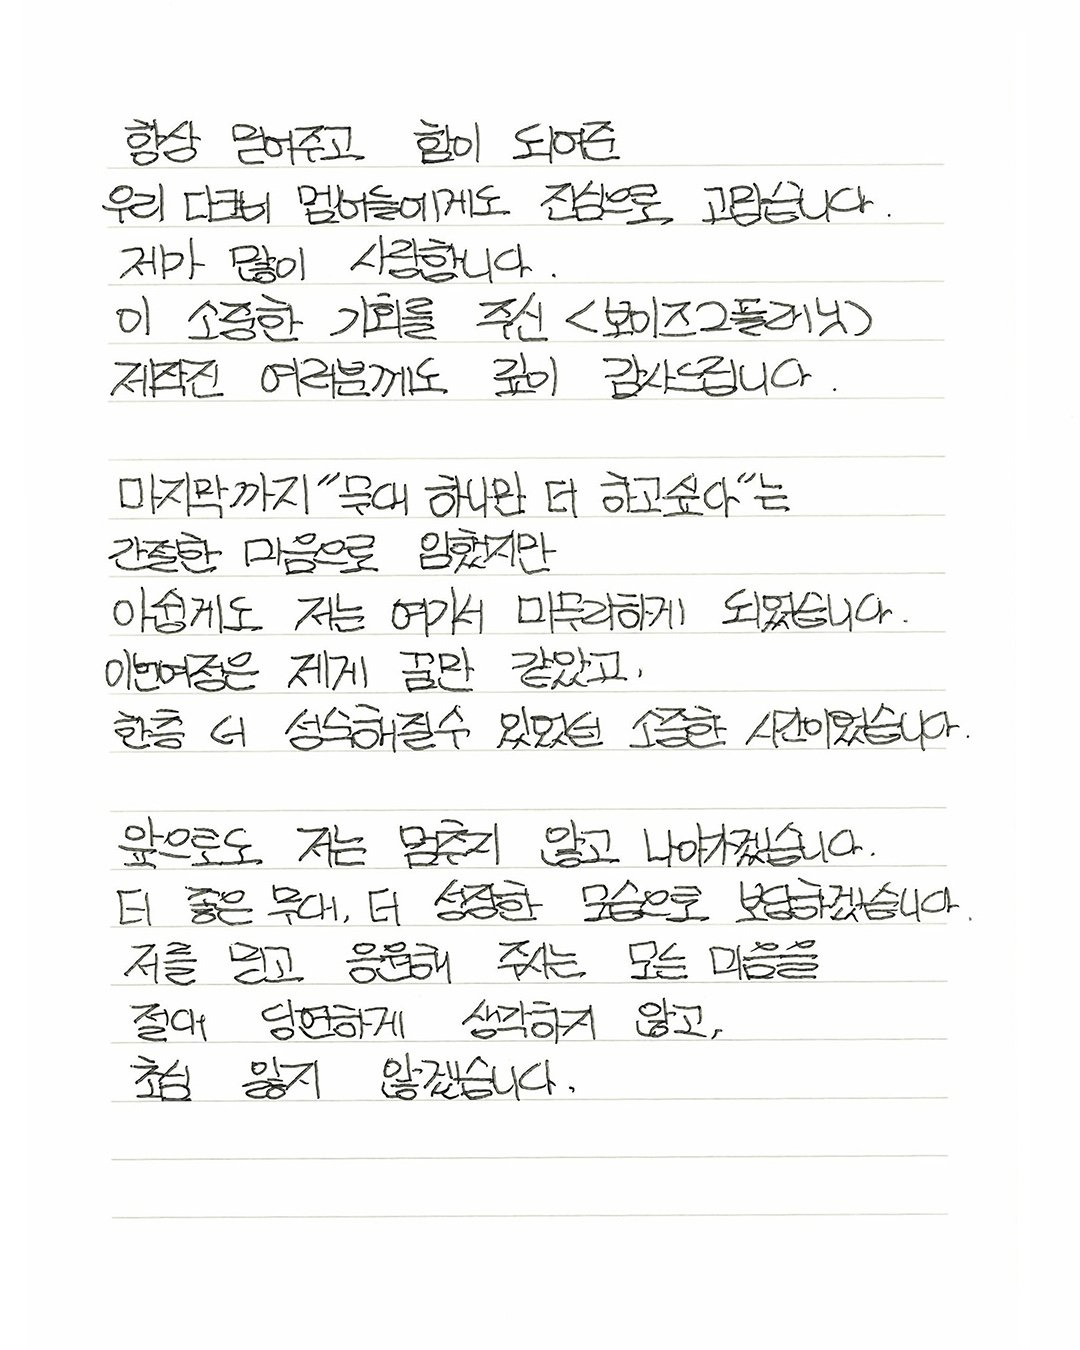 항상 믿어주고 힘이 되어준
우리 다크비 멤버들에게도 진심으로 고맙습니다.
제마 많이 사랑합니다.
이 소중한 기회를 주신 <보이즈2플래닛>
제작진 여러분께도 깊이 감사드립니다.
마지막까지 "무대 하나만 더 하고싶다"는
간절한 마음으로 임했지만
아쉽게도 저는 여기서 마무리하게 되었습니다.
이번여정은 제게 꿈만 같았고,
한층 더 성숙해질수 있었던 소중한 시간이었습니다.
앞으로도 저는 멈추지 않고 나아가겠습니다.
더 좋은 무대, 더 성장한 모습으로 보답하겠습니다.
저를 믿고 응원해 주시는 모든 마음을
절대 당연하게 생각하지 않고,
초심 잃지 않겠습니다.